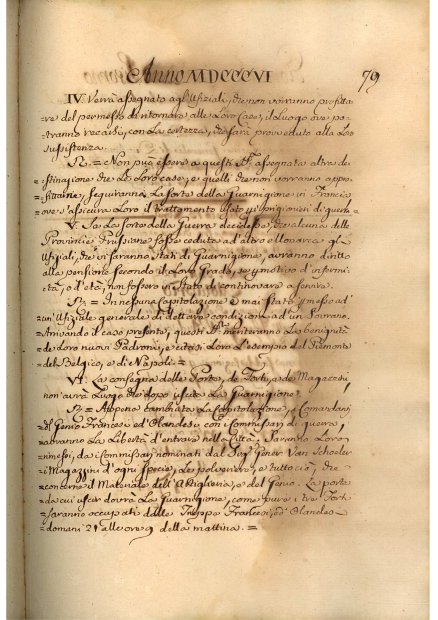 Anno MDCCCVI
79
IV. Verrà assegnato agl'Ufiziali, che non vorranno profitta-
re del permesso di ritornare alle Loro Case, il luogo ove po-
tranno recarsi, con la certezza, che sarà proveduto alla Loro
sussistenza.
R. = Non può essere a questi assegnata altra de-
stinazione che le Loro case, e quelli che non vorranno appro-
fittarne, seguiranno la sorte della Guarnigione in Francia
ove assicura Loro il trattamento usato i prigionieri di guerra
V. Se la sorte della Guerra decidesse, che alcuna delle
Provincie Prussiane fosse ceduta ad altro Monarca gl'
Ufiziali, che vi saranno stati di Guarnigione, avranno diritto
alla pensione secondo il Loro Grado, se motivo d'infermi-
tà, o d'età, non fossero in stato di continovare a servire.
R. = In nessuna Capitolazione è mai stato messo ad
un Ufiziale generale di dettare condizioni ad un Sovrano.
Arrivando il caso presente, questi meriteranno la benignità
de Loro nuovi Padroni, e citasi Loro l'esempio del Piemonte
del Belgico, e di Napoli =
VI. La consegna delle Porte, de Forti, e de Magazzeni
non avrà Luogo che dopo uscita la Guarnigione.
R. = Appena cambiata la Capitolazione, i Comandanti
del Genio Francese ed Olandese con i Commissari di guerra
avranno la Libertà d'entrare nella Città. Saranno Loro
rimessi, da Commissari nominati dal Sig. Gener. Van Schoeler
i Magazzini d'ogni specie, le polveriere, e tutto ciò, che
concerne il Materiale dell'Artiglieria, e del Genio. La porta
da cui uscir dovrà la Guarnigione, come pure i tre Forti
saranno occupati dalle Truppe Francesi, ed Olandesi
domani 21 alle ore 9 della mattina. =